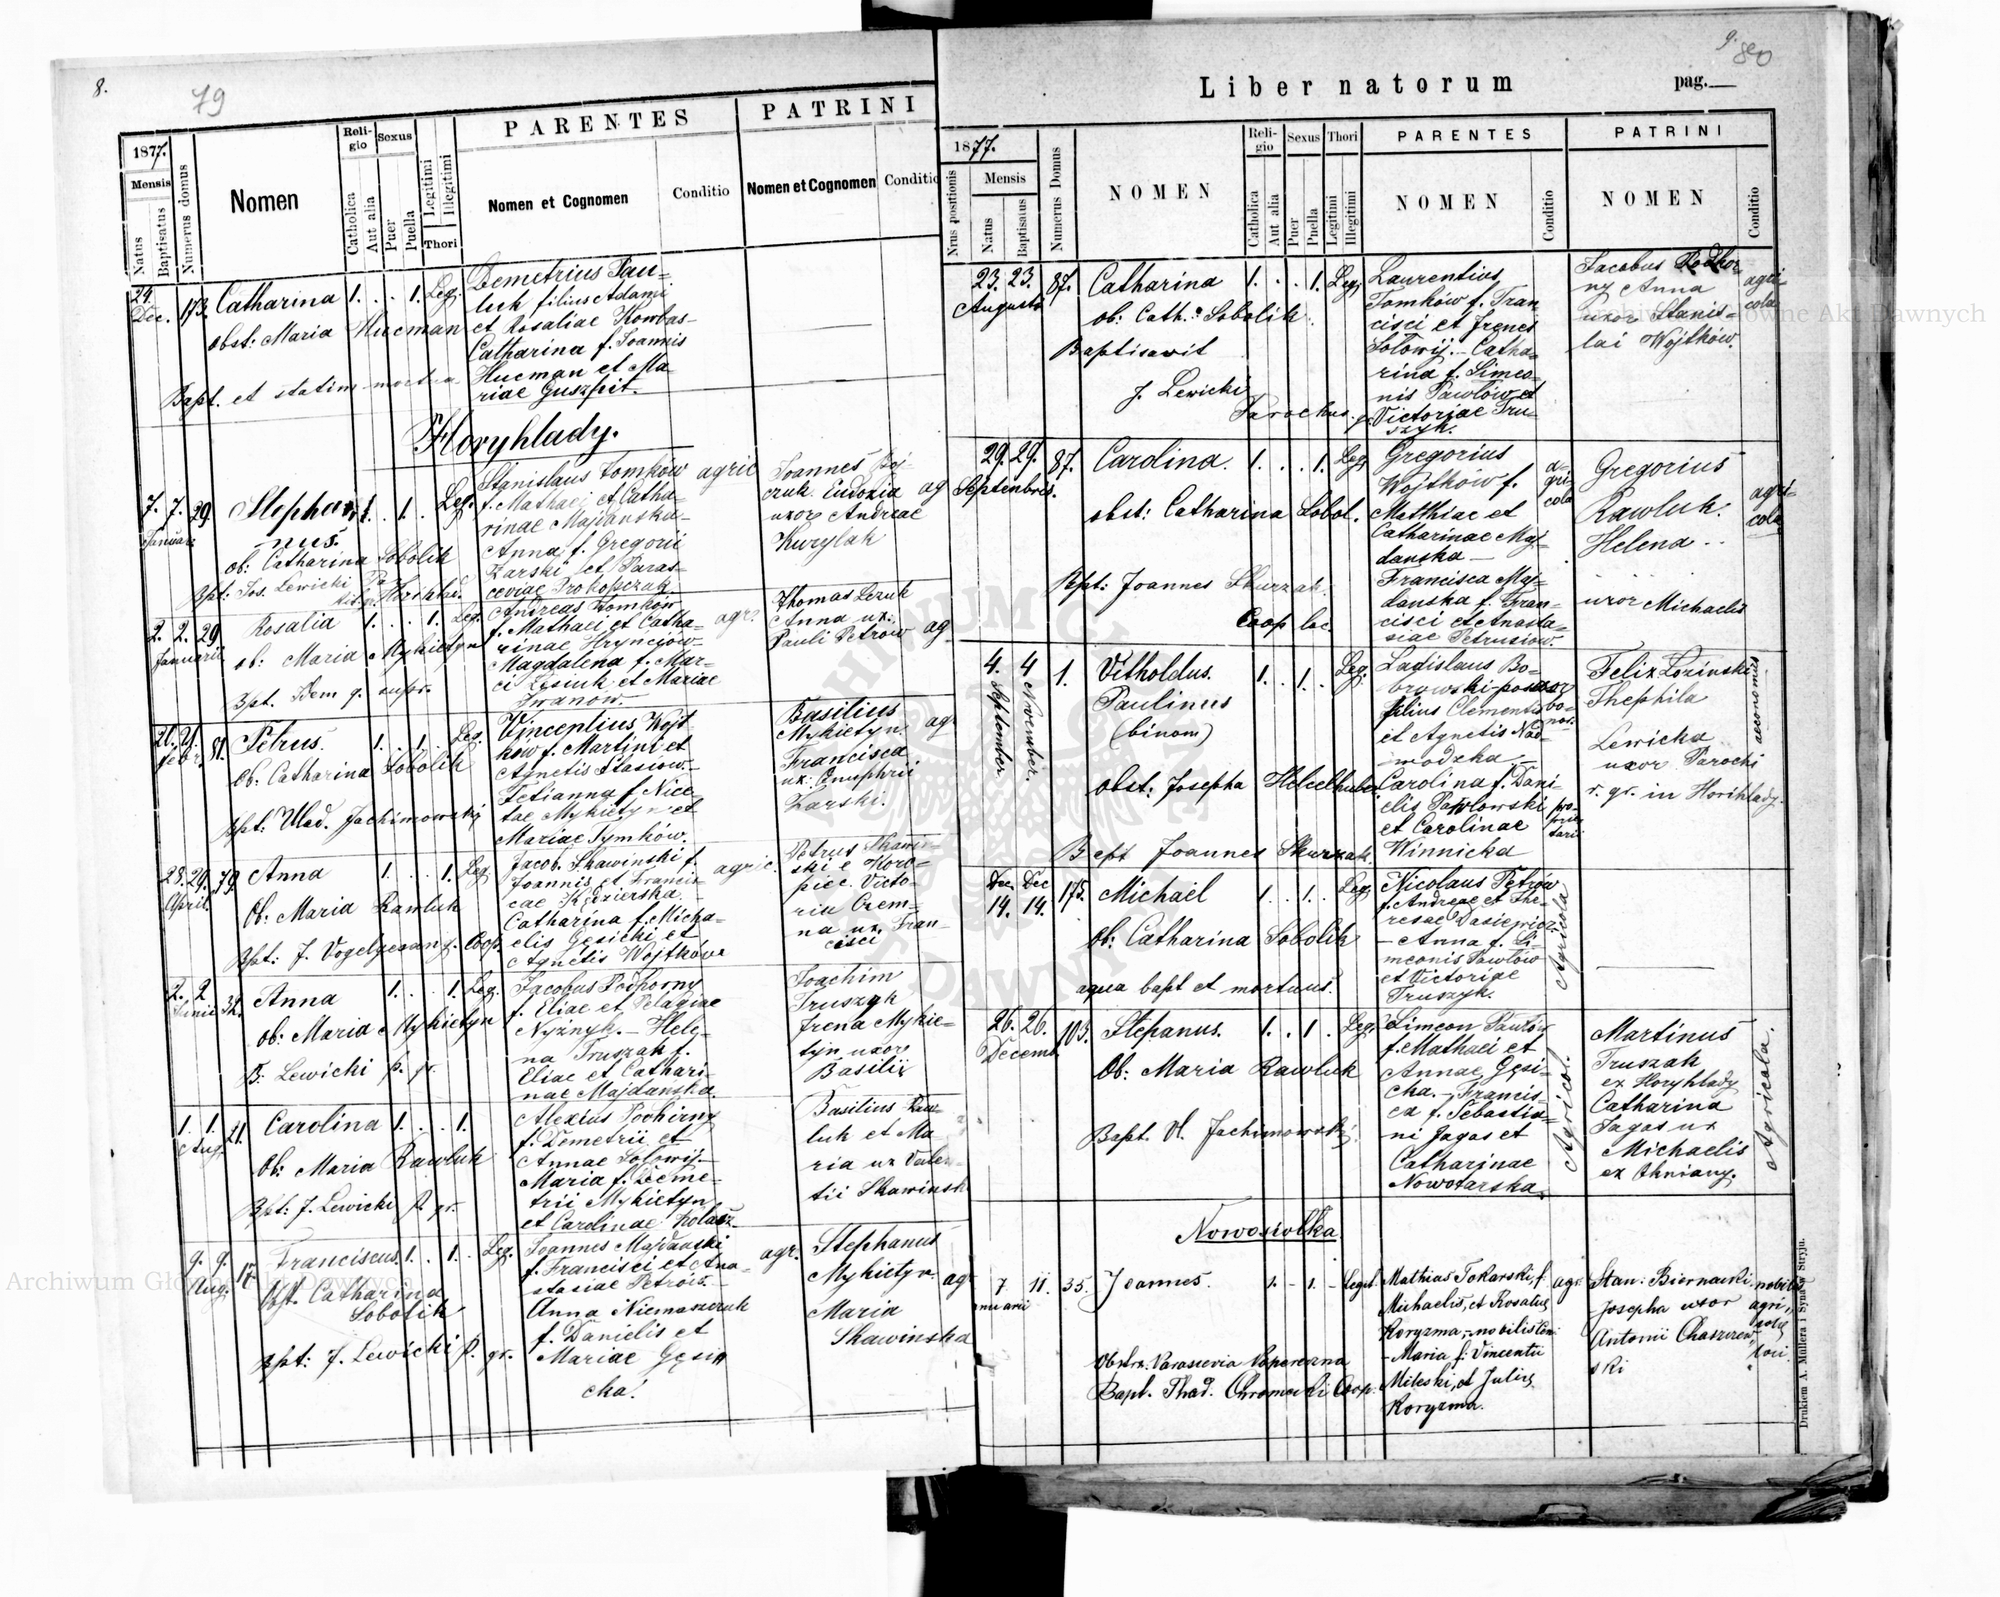 8.
79
1877.
Mensis
Natus
Baptisatus
Numerus domus
Nomen
Religio
Catholica
Aut alia
Sexus
Puer
Puella
Legitimi
Illegitimi
Thori
PARENTES
Nomen et Cognomen
Conditio
PATRINI
Nomen et Cognomen
Conditio
24. Dec. 173. Catharina 1. . . 1. Leg.
obst: Maria Hucman
Bapt. et statim mortua
Demetrius Pau-
luk filius Adami
et Rosaliae Kowbas-
Catharina f. Joannis
Hucman et Ma-
riae Guszpit.
Horyhlady.
7. 7. 29. Stephan 1. . 1. Leg.
Januar. nus.
ob: Catharina Sobolik
Bpt: Jos. Lewicki
Stanislaus Tomków agric
f. Mathaei et Catha-
rinae Majdanska-
Anna f. Gregorii
Zarski et Paras-
ceviae Prokopczak.
Joannes
Eudoxia ag
uxor Andreae
Kurylak
2. 2. 29. Rosalia 1. . . 1. Leg.
Januarii ob: Maria Mykietyn
Bpt. Idem q. supr.
Andreas Tomków agr.
f. Mathaei et Catha-
rinae Hryncjow-
Magdalena f. Mar-
ci Lesiuk et Mariae
Iwanow.
Thomas Lezuk
Anna ux:
Pauli Petrow ag
21. 21. 81. Petrus. 1. . 1. . Leg.
Febr. Ob: Catharina Sobolik
Bpt: Wlad. Jachimowski
Vincentius Wojt
ków f. Martini et
Agnetis Stasiow-
Tetianna f. Nice-
tae Mykietyn et
Mariae Tymków.
Basilius agr
Mykietyn.
Francisca
ux: Onuphrii
Zarski.
28. 29. 79. Anna 1. . . 1. Leg.
April. Ob: Maria Rawluk
Bpt: J. Vogelgesang. Coop.
Jacob. Skawinski f. agric.
Joannis et Francis-
cae Kęzierska.
Catharina f. Micha-
elis Gęsicki et
Agnetis Wojtków
Petrus Skawin-
ski e Koro-
piec. Victo-
ria Czem-
na ux. Fran-
cisci
2. 2. 32. Anna 1. . . 1. Leg.
Junii ob: Maria Mykietyn
B: Lewicki p. gr.
Jacobus Podhorny
f. Eliae et Pelagiae
Nyżnyk. - Hele-
na Truszak f.
Eliae et Cathari-
nae Majdanska.
Joachim
Truszyk
Irena Mykie-
tyn uxor
Basilii
1. 1. 21. Carolina 1. . . 1.
Aug. Ob: Maria Rawluk
Bpt: J. Lewicki p. gr.
Alexius Podhirny
f. Demetrii et
Annae Sołowij-
Maria f. Deme-
trii Mykietyn
et Carolinae
Basilius Raw-
luk et Ma-
ria ux Valen-
tii Skawinsk
9. 9. 17. Franciscus 1. . 1. . Leg.
Aug. Obst. Catharina
Sobolik
Bpt: J. Lewicki p. gr.
Joannes Majdanski agr.
f. Francisci et Ana-
stasiae Petrów.-
Anna Niemaszczuk
f. Danielis et
Mariae Gęsic
cka.
Stephanus
Mykietyn. agr
Maria
Skawinska
9. 80
Liber natorum pag.
1877.
Nrus positionis
Mensis
Natus
Baptisatus
Numerus Domus
NOMEN
Religio
Catholica
Aut alia
Sexus
Puer
Puella
Thori
Legitimi
Illegitimi
PARENTES
NOMEN
Conditio
PATRINI
NOMEN
Conditio
23. 23. 87. Catharina 1. . . 1. Leg.
Augusti ob: Cath. Sobolik.
Baptisavit
J. Lewicki
Parochus. g.
Laurentius
Tomków f. Fran
cisci et Irenes
Sołowij. - Catha-
rina f. Simeo-
nis Pawlów et
Victoriae Tru-
szyk.
Jacobus Podhor
ny Anna
uxor Stanis-
lai Wójtków.
agri-
cola
29. 29. 87. Carolina. 1. . . 1. Leg.
Septenbris. obst: Catharina Sobol.
Bpt: Joannes Skurzak.
Coop loc.
Gregorius
Wojtków f.
Matthiae et
Catharinae Maj-
danska -
Francisca Maj-
danska f. Fran-
cisci et Anasta-
siae Petrusiow.
a-
gri-
cola
Gregorius
Rawluk.
Helena
uxor Michaelis
agri-
cola
4. September 4 November. 1. Vitholdus. 1. . 1. . Leg.
Paulinus
(binom)
obst: Josepha Helcelhuber
Bapt Joannes Skurzak.
Ladislaus Bo-
browski possesor
filius Clementis bo-
et Agnetis Nad- nor.
wodzka. -
Carolina f. Dani-
elis Pawlowski
et Carolinae
Winnicka
proprie
tarii
Felix Łozinski
Thephila
Lewicka
uxor Parochi
r. gr. in Horihlady.
aeconomus
Dec. Dec
14. 14. 175. Michael 1. . 1. . Leg.
Ob: Catharina Sobolik
aqua bapt et mortuus.
Nicolaus Petrów
f. Andreae et The-
resae Dasiewicz
- Anna f. Si-
meonis Pawlów
et Victoriae
Truszyk.
Agricola
26. 26. 103. Stepanus. 1. . 1. . Leg.
Decemb. Ob: Maria Rawluk
Bapt. Vl. Jachimowski.
Simeon Pawlów
f. Mathaei et
Annae Gęsi-
cka. - Francis-
ca f. Sebastia-
ni Jagas et
Catharinae
Nowotarska.
Agricol.
Martinus
Truszak
ex Horyhlady
Catharina
Jagas ux
Michaelis
ex Okniany.
Agricola.
Nowosiołka
7 11. 35. Joannes. 1. - 1. - Legit.
nuarii
Obstr. Parascevia Poperezna
Bapt. Thad. Chromecki Coop.
Mathias Tokarski, f. agr.
Michaelis, et Rosaliae
Koryzma, - nobilis
- Maria f: Vincentii
Mileski, et Juliae
Koryzma.
Stan: Biernacki
Josepha uxor
Antonii Chaszczew
ski
nobiles
agri,,
colae
Drukiem A. Müllera i Syna w Stryju.
Archiwum Główne Akt Dawnych
Archiwum Główne Akt Dawnych
ARCHIWUM GŁÓWNE AKT DAWNYCH